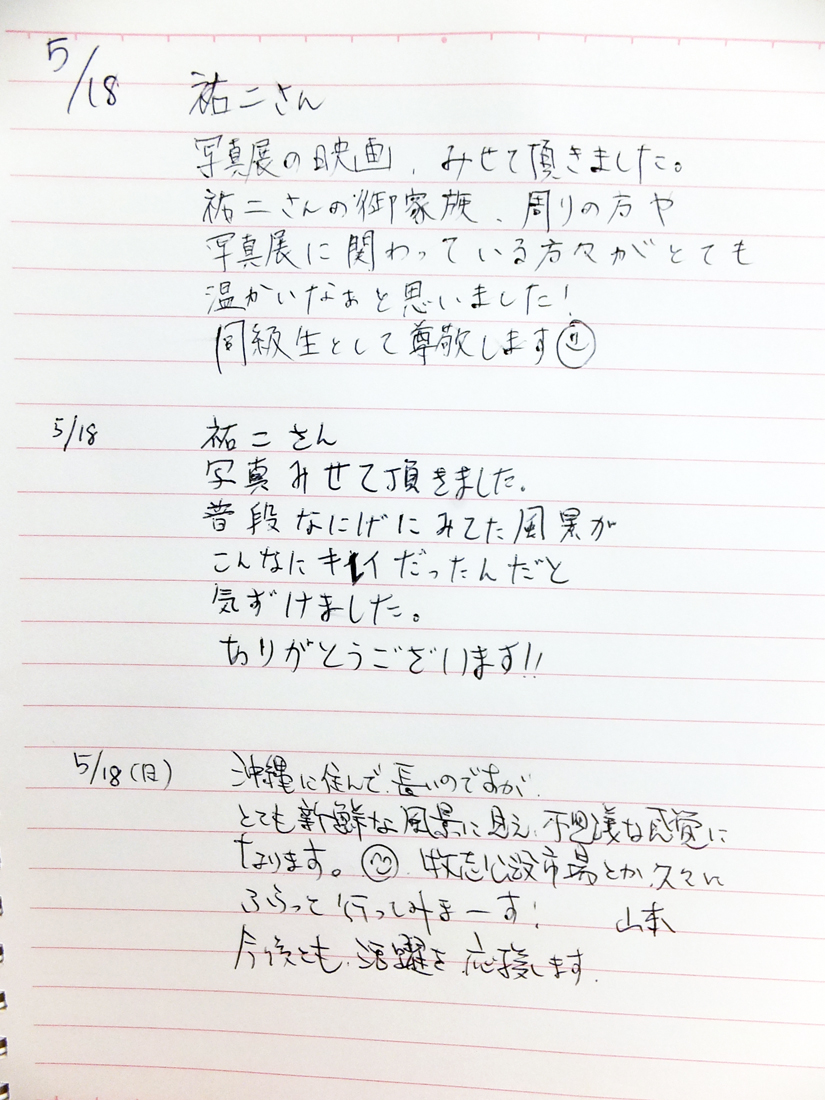 5/18 祐二さん
写真展の映画、みせて頂きました。
祐二さんの御家族、周りの方や
写真展に関わっている方々がとても
温かいなぁと思いました!
同級生として尊敬します
5/18 祐二さん
写真みせて頂きました。
普段なにげにみてた風景が
こんなにキレイだったんだと
気ずけました。
ありがとうございます!!
5/18(日) 沖縄に住んで、長いのですが、
とても新鮮な風景に見え、不思議な感覚に
なります。牧志公設市場とか、久々に
ふらっと行ってみまーす! 山本
今後とも、活躍を応援します.